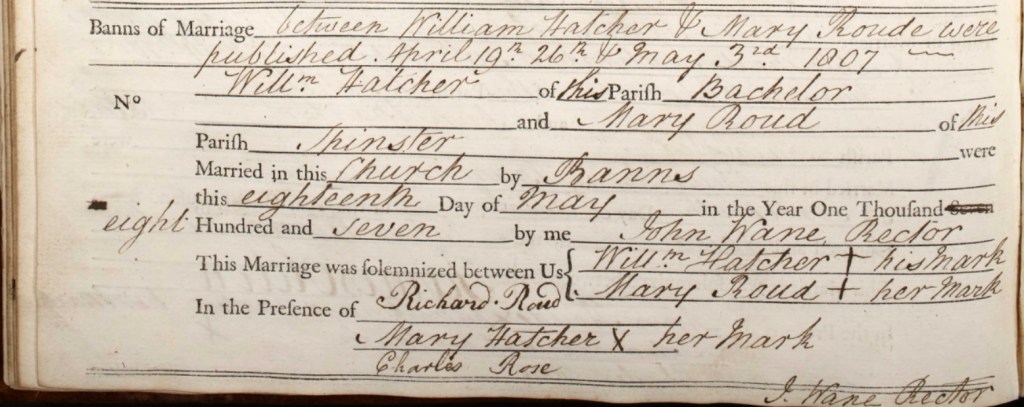 Banns of Marriage between William Hatcher & Mary Roude were
published April 19th 26th & May 3rd 1807
Willm Hatcher of this Parish Bachelor
No
and Mary Roud of this
Parish Spinster were
Married in this Church by Banns
this eighteenth Day of May in the Year One Thousand Seven
eight Hundred and seven by me John Wane Rector
This Marriage was solemnized between Us { Willm Hatcher + his mark
Mary Roud + her Mark
In the Presence of Richard Roud
Mary Hatcher X her Mark
Charles Rose
J. Wane Rector